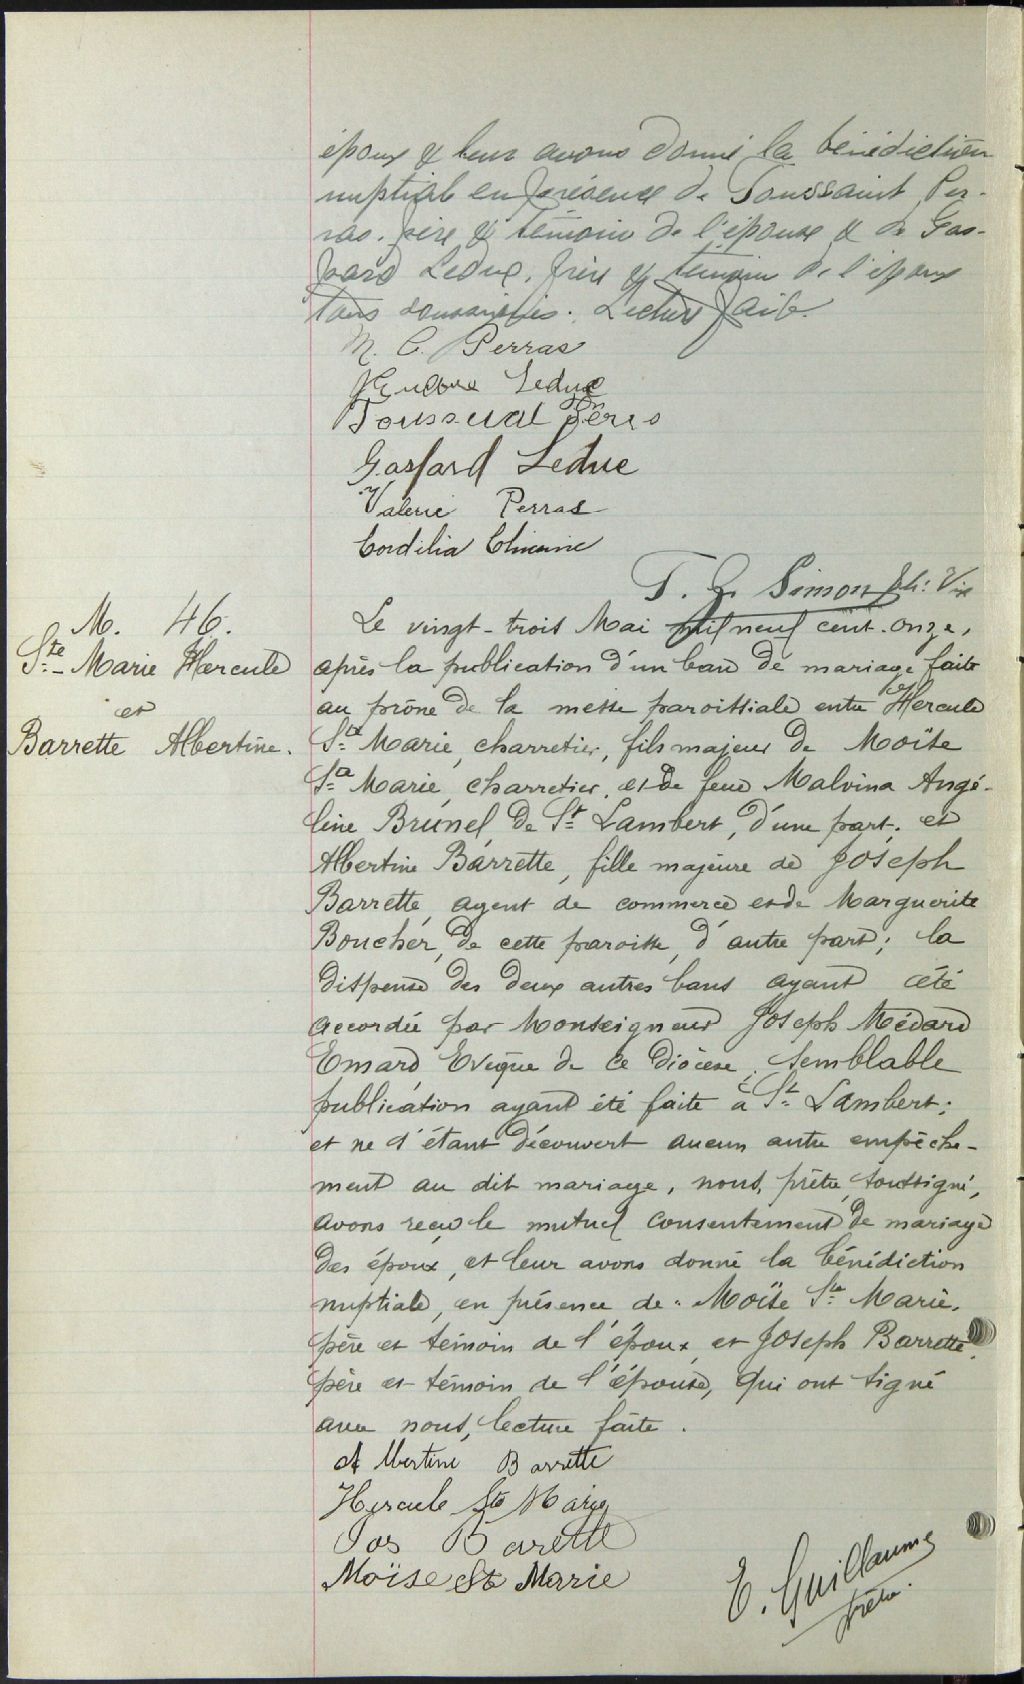 époux & leur avons donné la bénédiction
nuptiale en présence de Toussaint Per-
ras, père & témoin de l'épouse & de Gas-
pard Leduc, frère & témoin de l'époux
tous soussignés. Lecture faite.
M. C. Perras
Leduc
Toussaint
Gaspard Leduc
Valerie Perras
Cordilia
T. G. Simon Ptr: Vic
M. 46.
Ste Marie Hercule
et
Barrette Albertine.
Le vingt-trois Mai mil neuf cent onze,
après la publication d'un ban de mariage faite
au prône de la messe paroissiale entre Hercule
Ste Marie, charretier, fils majeur de Moïse
Ste Marie, charretier, et de feue Malvina Angé-
line Brunel de St Lambert, d'une part; et
Albertine Barrette, fille majeure de Joseph
Barrette, agent de commerce et de Marguerite
Boucher, de cette paroisse, d'autre part; la
dispense des deux autres bans ayant été
accordée par Monseigneur Joseph Médard
Emard Evêque de ce diocèse, semblable
publication ayant été faite à St Lambert;
et ne s'étant découvert aucun autre empêche-
ment au dit mariage, nous, prêtre, soussigné,
avons reçu le mutuel consentement de mariage
des époux, et leur avons donné la bénédiction
nuptiale, en présence de Moïse Ste Marie,
père et témoin de l'époux, et Joseph Barrette,
père et témoin de l'épouse, qui ont signé
avec nous, lecture faite.
Albertine Barrette
Hercule Ste Marie
Jos Barette
Moïse Ste Marie
E. Guillaume
prêtre.